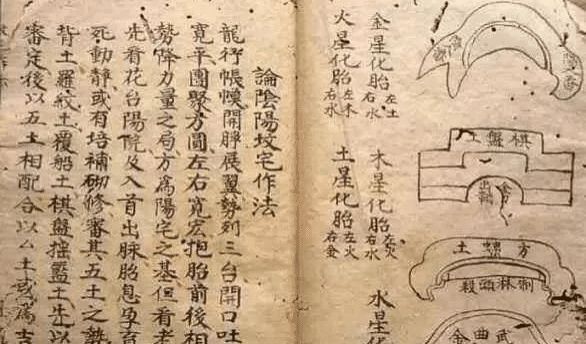 棋盤土
武曲金
金星化胎 左土右水
木星化胎 左火右水
水星化胎
火星化胎 左木右水
土星化胎 左火右金
論陰陽坟宅作法
龍行帳幙開睜展翼勢列三台開口吐
寬平團聚方圓左右寬宏抱胎前後相
勢降力量之局方為陽宅之基但看老
先看花台陽院及入首出脉胎息孕育
死動靜或有培補砌修審其五土之勢
背土羅紋土覆船土棋盤搖籃土先以
審定後以五土相配合以厶土或為吉